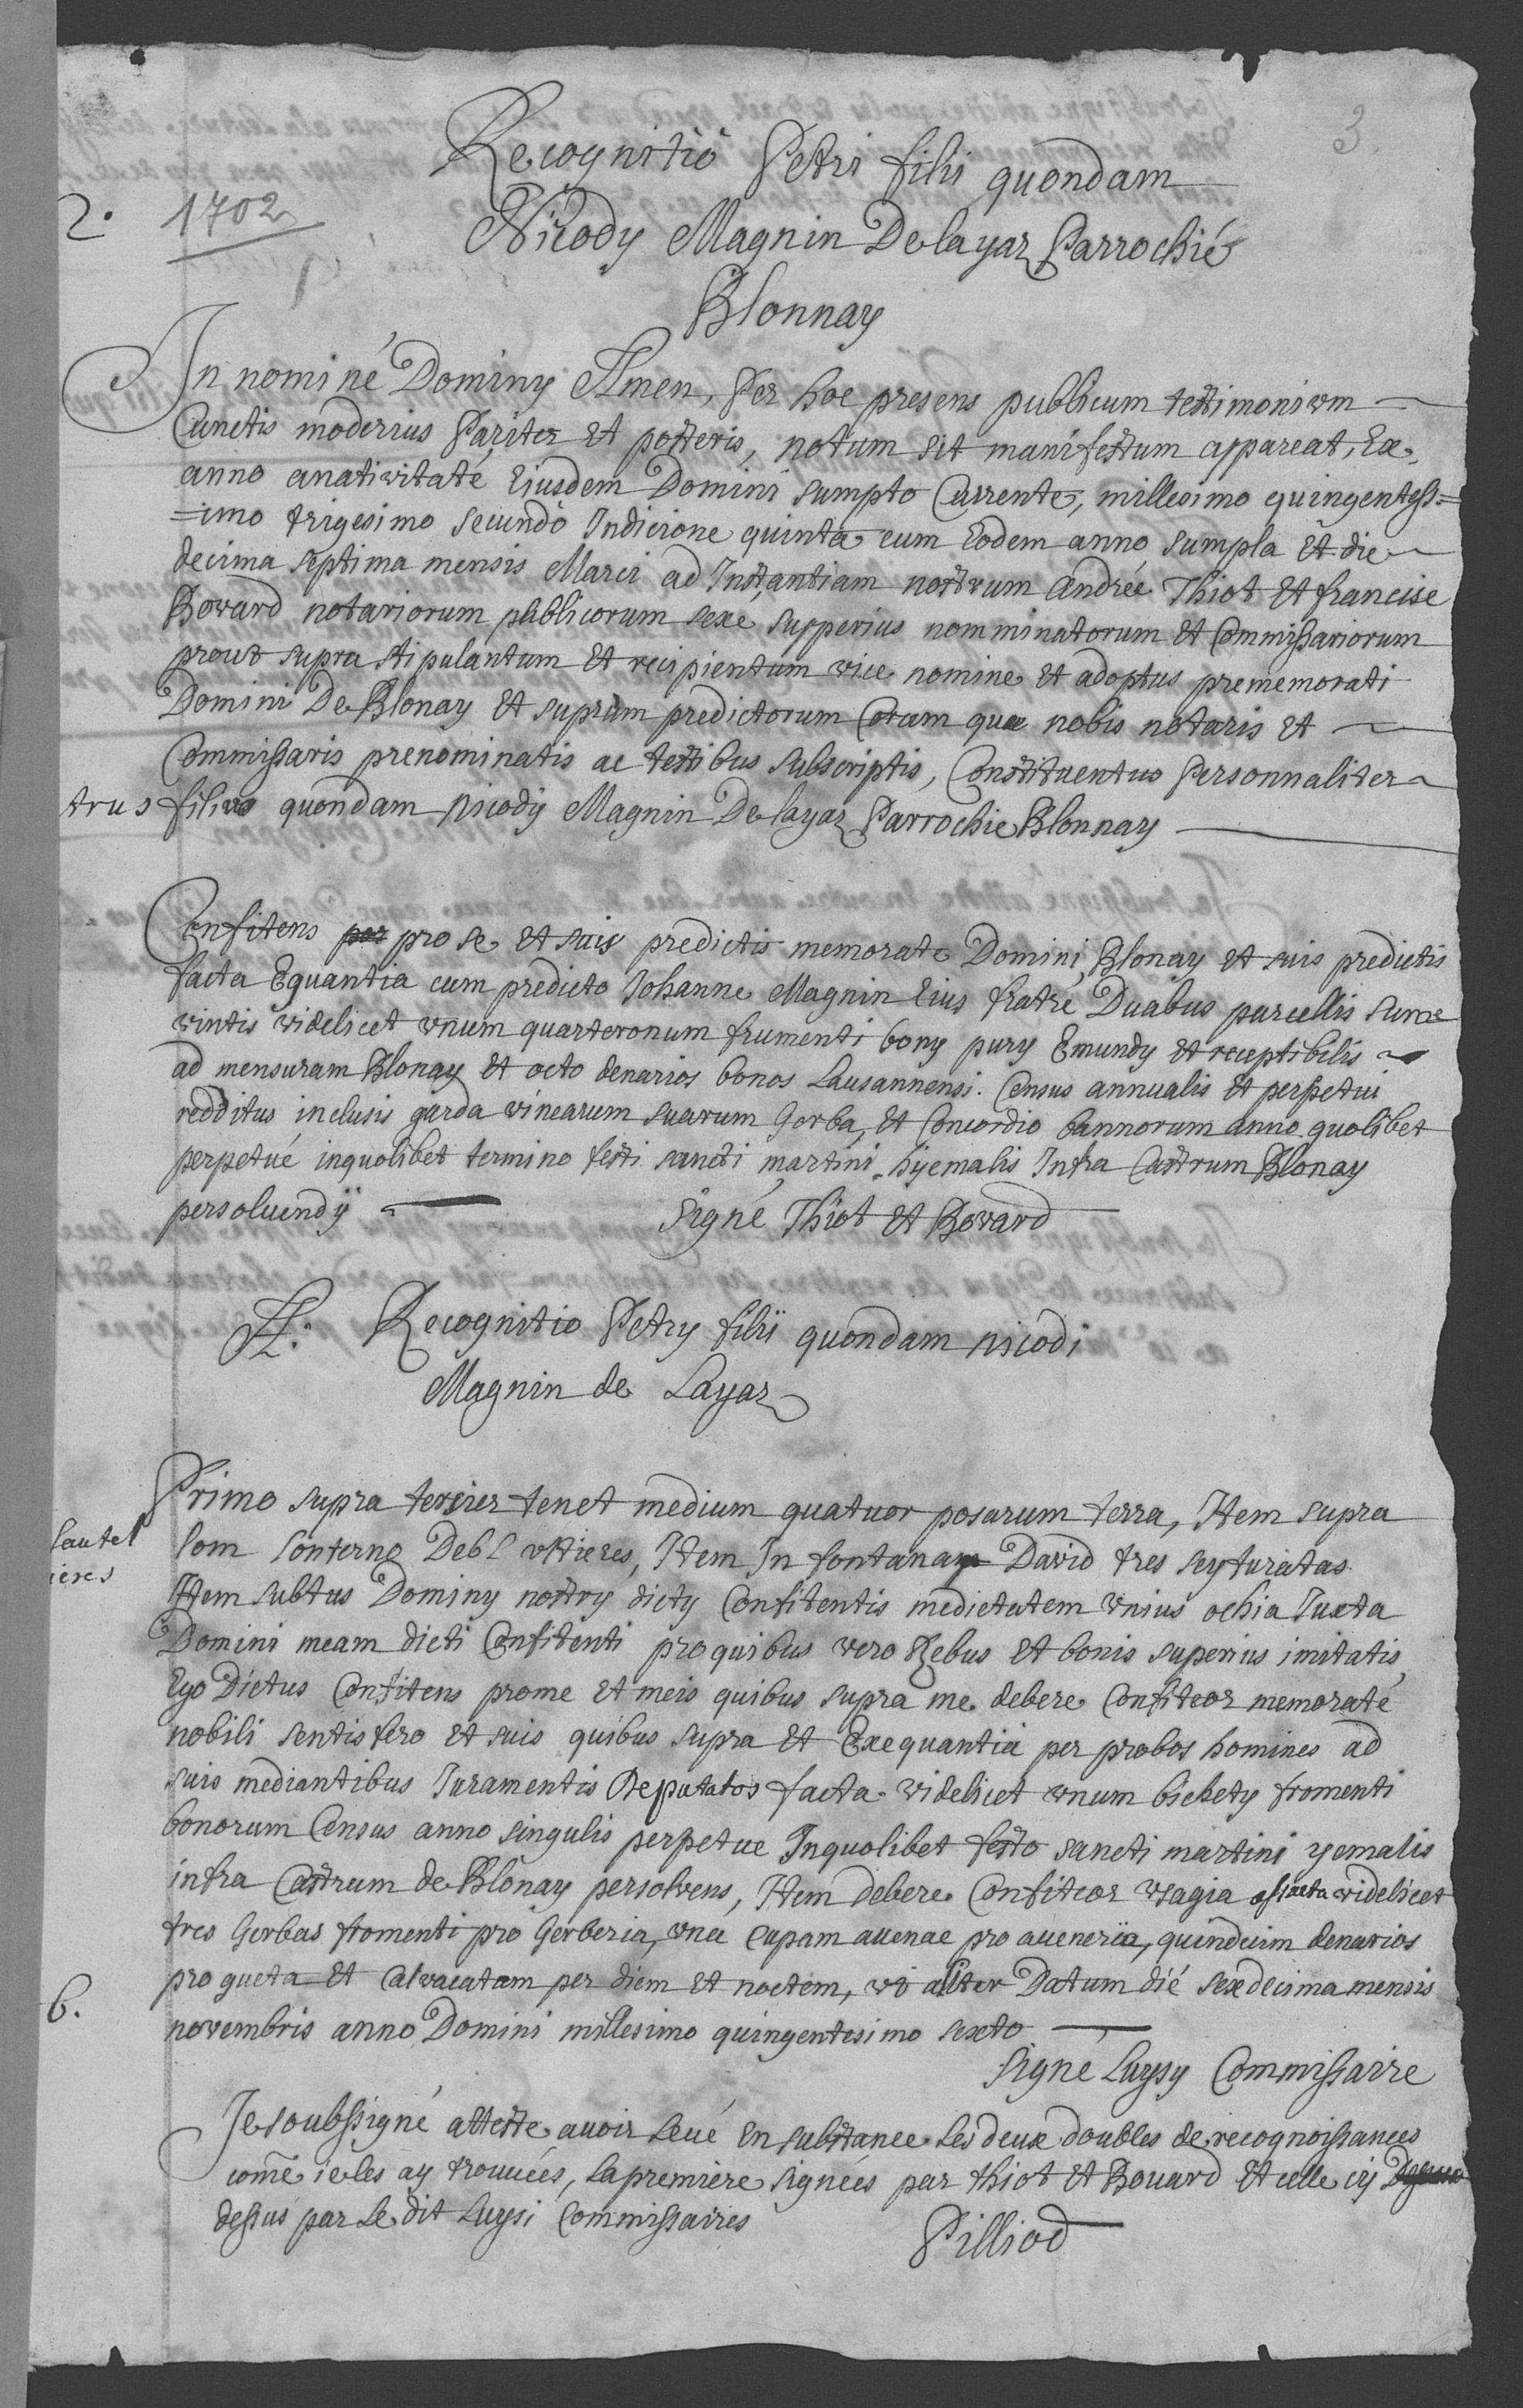 3
2. 1702
Recognitio Petri filii quondam
Nicody Magnin Delayaz Parrochié
Blonnay
In nominé Dominy Amen, Per hoc presens publicum testimonium
Cunctis modernis Pariter et posteris, notum sit manifestum appareat, Ex
anno anativitaté Eiusdem Domini sumpto Currente, millesimo quingentess=
=imo trigesimo secundo Indicione quinta cum Eodem anno sumpla et die
decima septima mensis Marci ad Instantiam nostrum Andrée Thiot et francise
Bovard notariorum publicorum sexe supperius nomminatorum et Commissariorum
prout supra stipulantum et recipientum vice nomine et adoptus prememorati
Domini De Blonay et suprum predictorum Coram quae nobis notaris et
Commissaris prenominatis ac testibus subscriptis, Constituentus Personnaliter
trus filius quondam nicody Magnin Delayaz Parrochie Blonnay
Confitens por pro se et suis predictis memorate Domini Blonay et suis predictis
facta Equantia cum predicto Johanne Magnin Eius fratré Duabus parcellis sume
vintis videlicet vnum quarteronum frumenti bony pury Emundy et receptibilis
ad mensuram Blonay et octo denarios bonos Lausannensi. Census annualis et perpetui
redditus inclusis garda vinearum suarum Gorba, et Concordio bannorum anno quolibet
perpetué inquolibet termino festi sancti martini hyemalis Infra Castrum Blonay
persoluendÿ
Signé Thiot et Bovard
A: Recognitio Petry filii quondam nicodi
Magnin de Layaz
Primo supra tersier tenet medium quatuor posarum terra, Item supra
lautel
ieres
lom Conterno Debl vttieres, Item In fontanam David tres seyturatas
Item subtus Dominy nostry dicty Confitentis medietatem vnius ochia Juxta
Domini meam dicti Confitenti pro quibus vero Rebus et bonis superius imitatis
Ego Dictus Confitens prome et meis quibus supra me debere Confiteor memoraté
nobili sentisfero et suis quibus supra et Exequantia per probos homines ad
suis mediantibus Juramentis Deputatos facta videlicet vnum bichety fromenti
bonorum Census anno singulis perpetue Inquolibet festo sancti martini yemalis
infra Castrum de Blonay persolvens, Item debere Confiteor vsagia videlicet
tres Gerbas fromenti pro Gerberia, vna cupam auenae pro aueneria, quindecim denarios
pro gueta et Calvacatam per diem et noctem, vt aliter Datum dié sexdecima mensis
6.
novembris anno Domini millesimo quingentesimo sexto
Signé Luysy Commissaire
Je soubssigné atteste auoir leué en substance les deux doubles de recognoissances
comē ie les ay trouuées, la premiere signées par thiot et Bouard et celle cy
dessus par le dit Luysi Commissaires
Pilliod